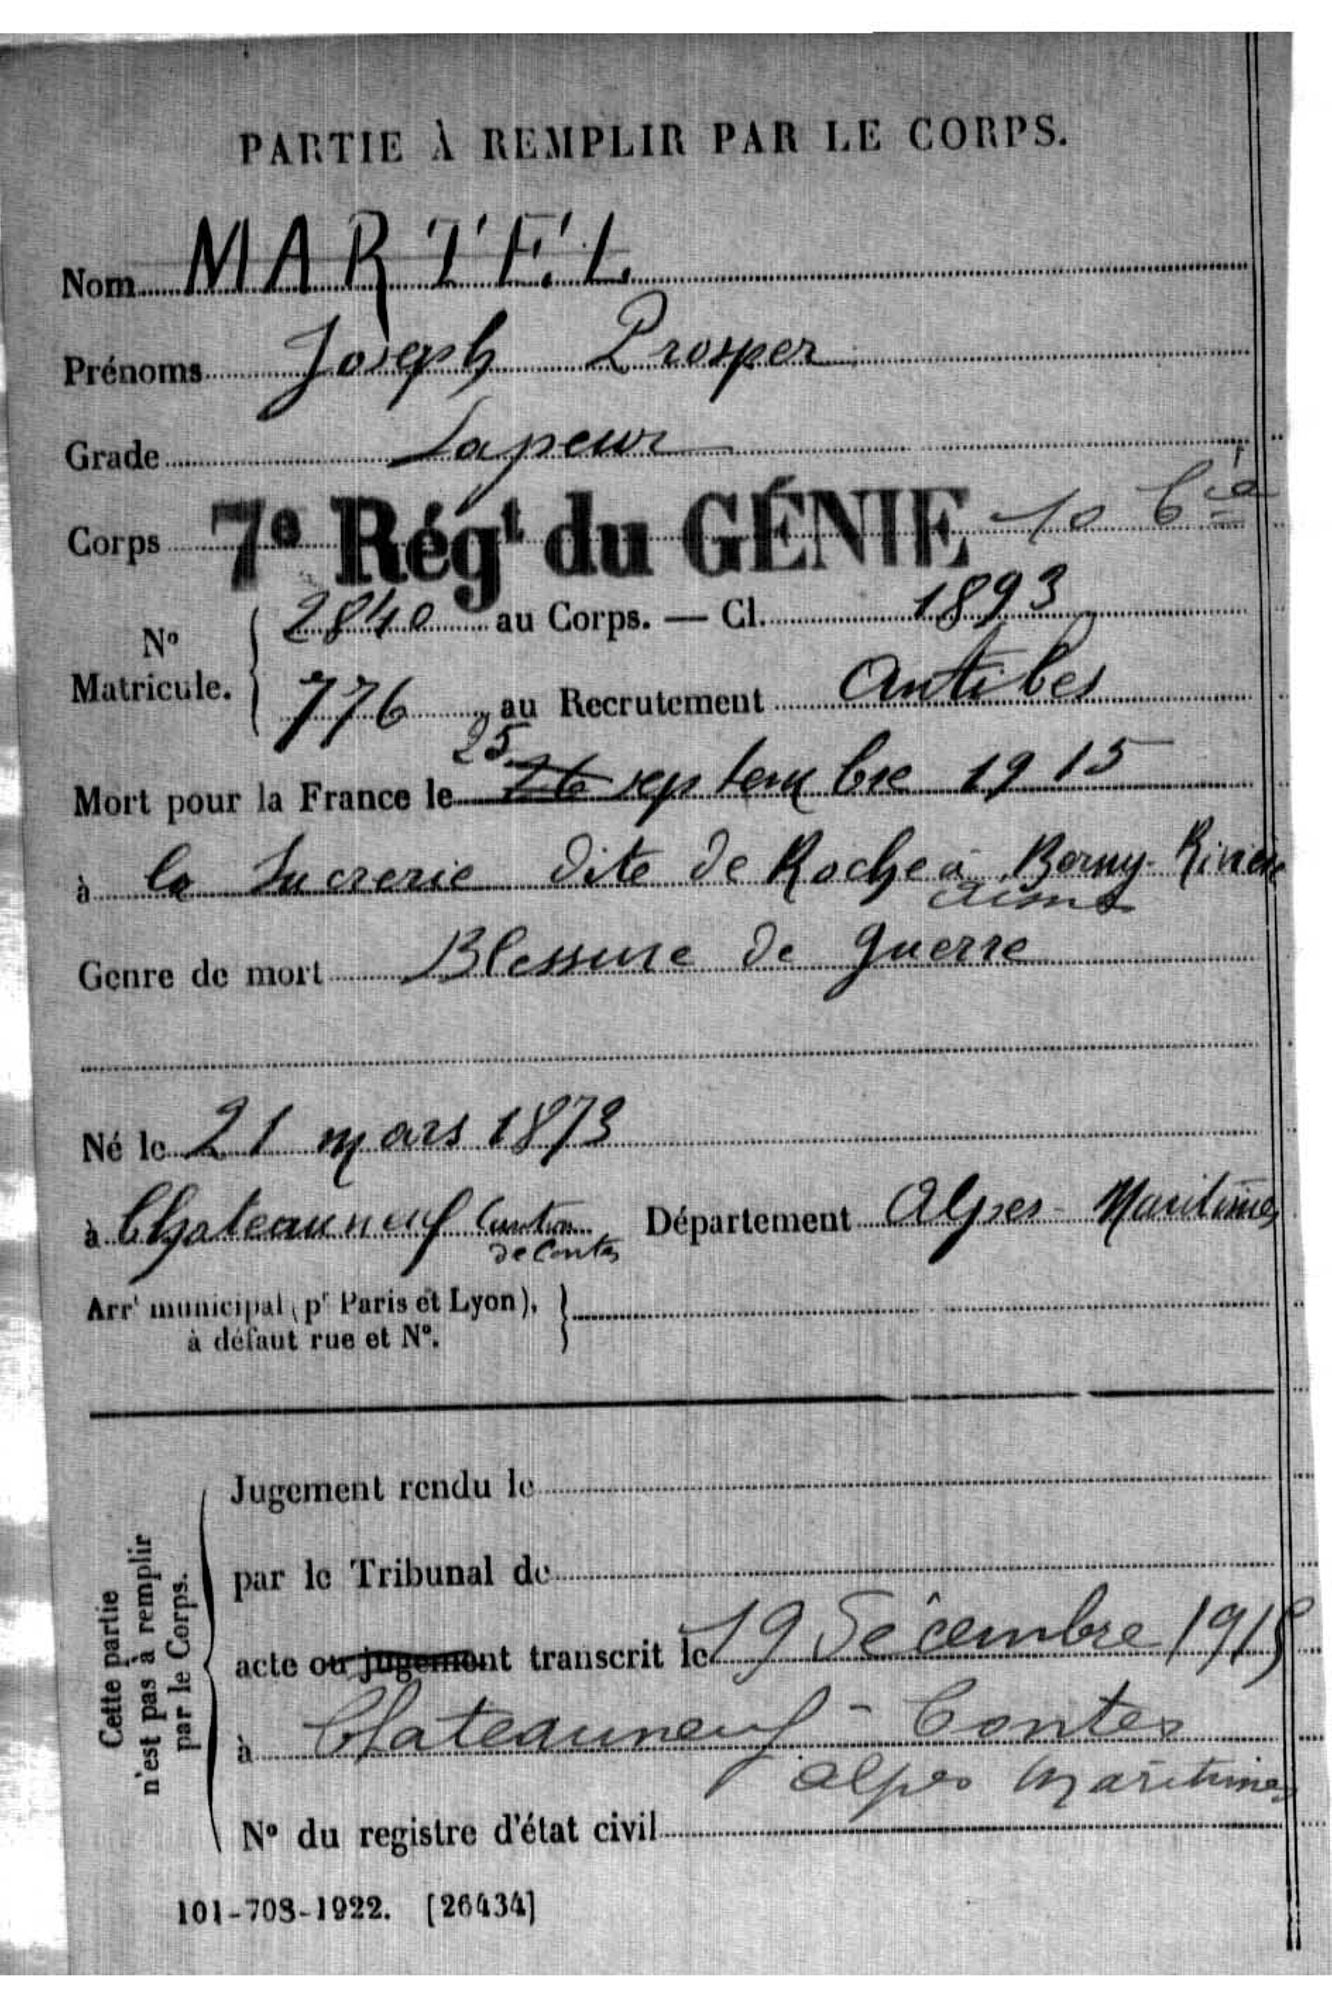 PARTIE À REMPLIR PAR LE CORPS.
Nom MARTEL
Prénoms Joseph Prosper
Grade Sapeur
Corps 7e Régt du GÉNIE 10 Cie
No Matricule. 2840 au Corps. — Cl. 1893
776 au Recrutement Antibes
25
Mort pour la France le 26 septembre 1915
à la Sucrerie dite de Roche à Berny-Rivière
Aisne
Genre de mort Blessure de guerre
Né le 21 mars 1873
à Chateauneuf Canton Département Alpes-Maritimes
de Contes
Arrt municipal (pr Paris et Lyon),
à défaut rue et No.
Cette partie
n'est pas à remplir
par le Corps.
Jugement rendu le
par le Tribunal de
acte ou jugement transcrit le 19 Décembre 1915
à Chateauneuf - Contes
Alpes Maritimes
No du registre d'état civil
101-708-1922. [26434]